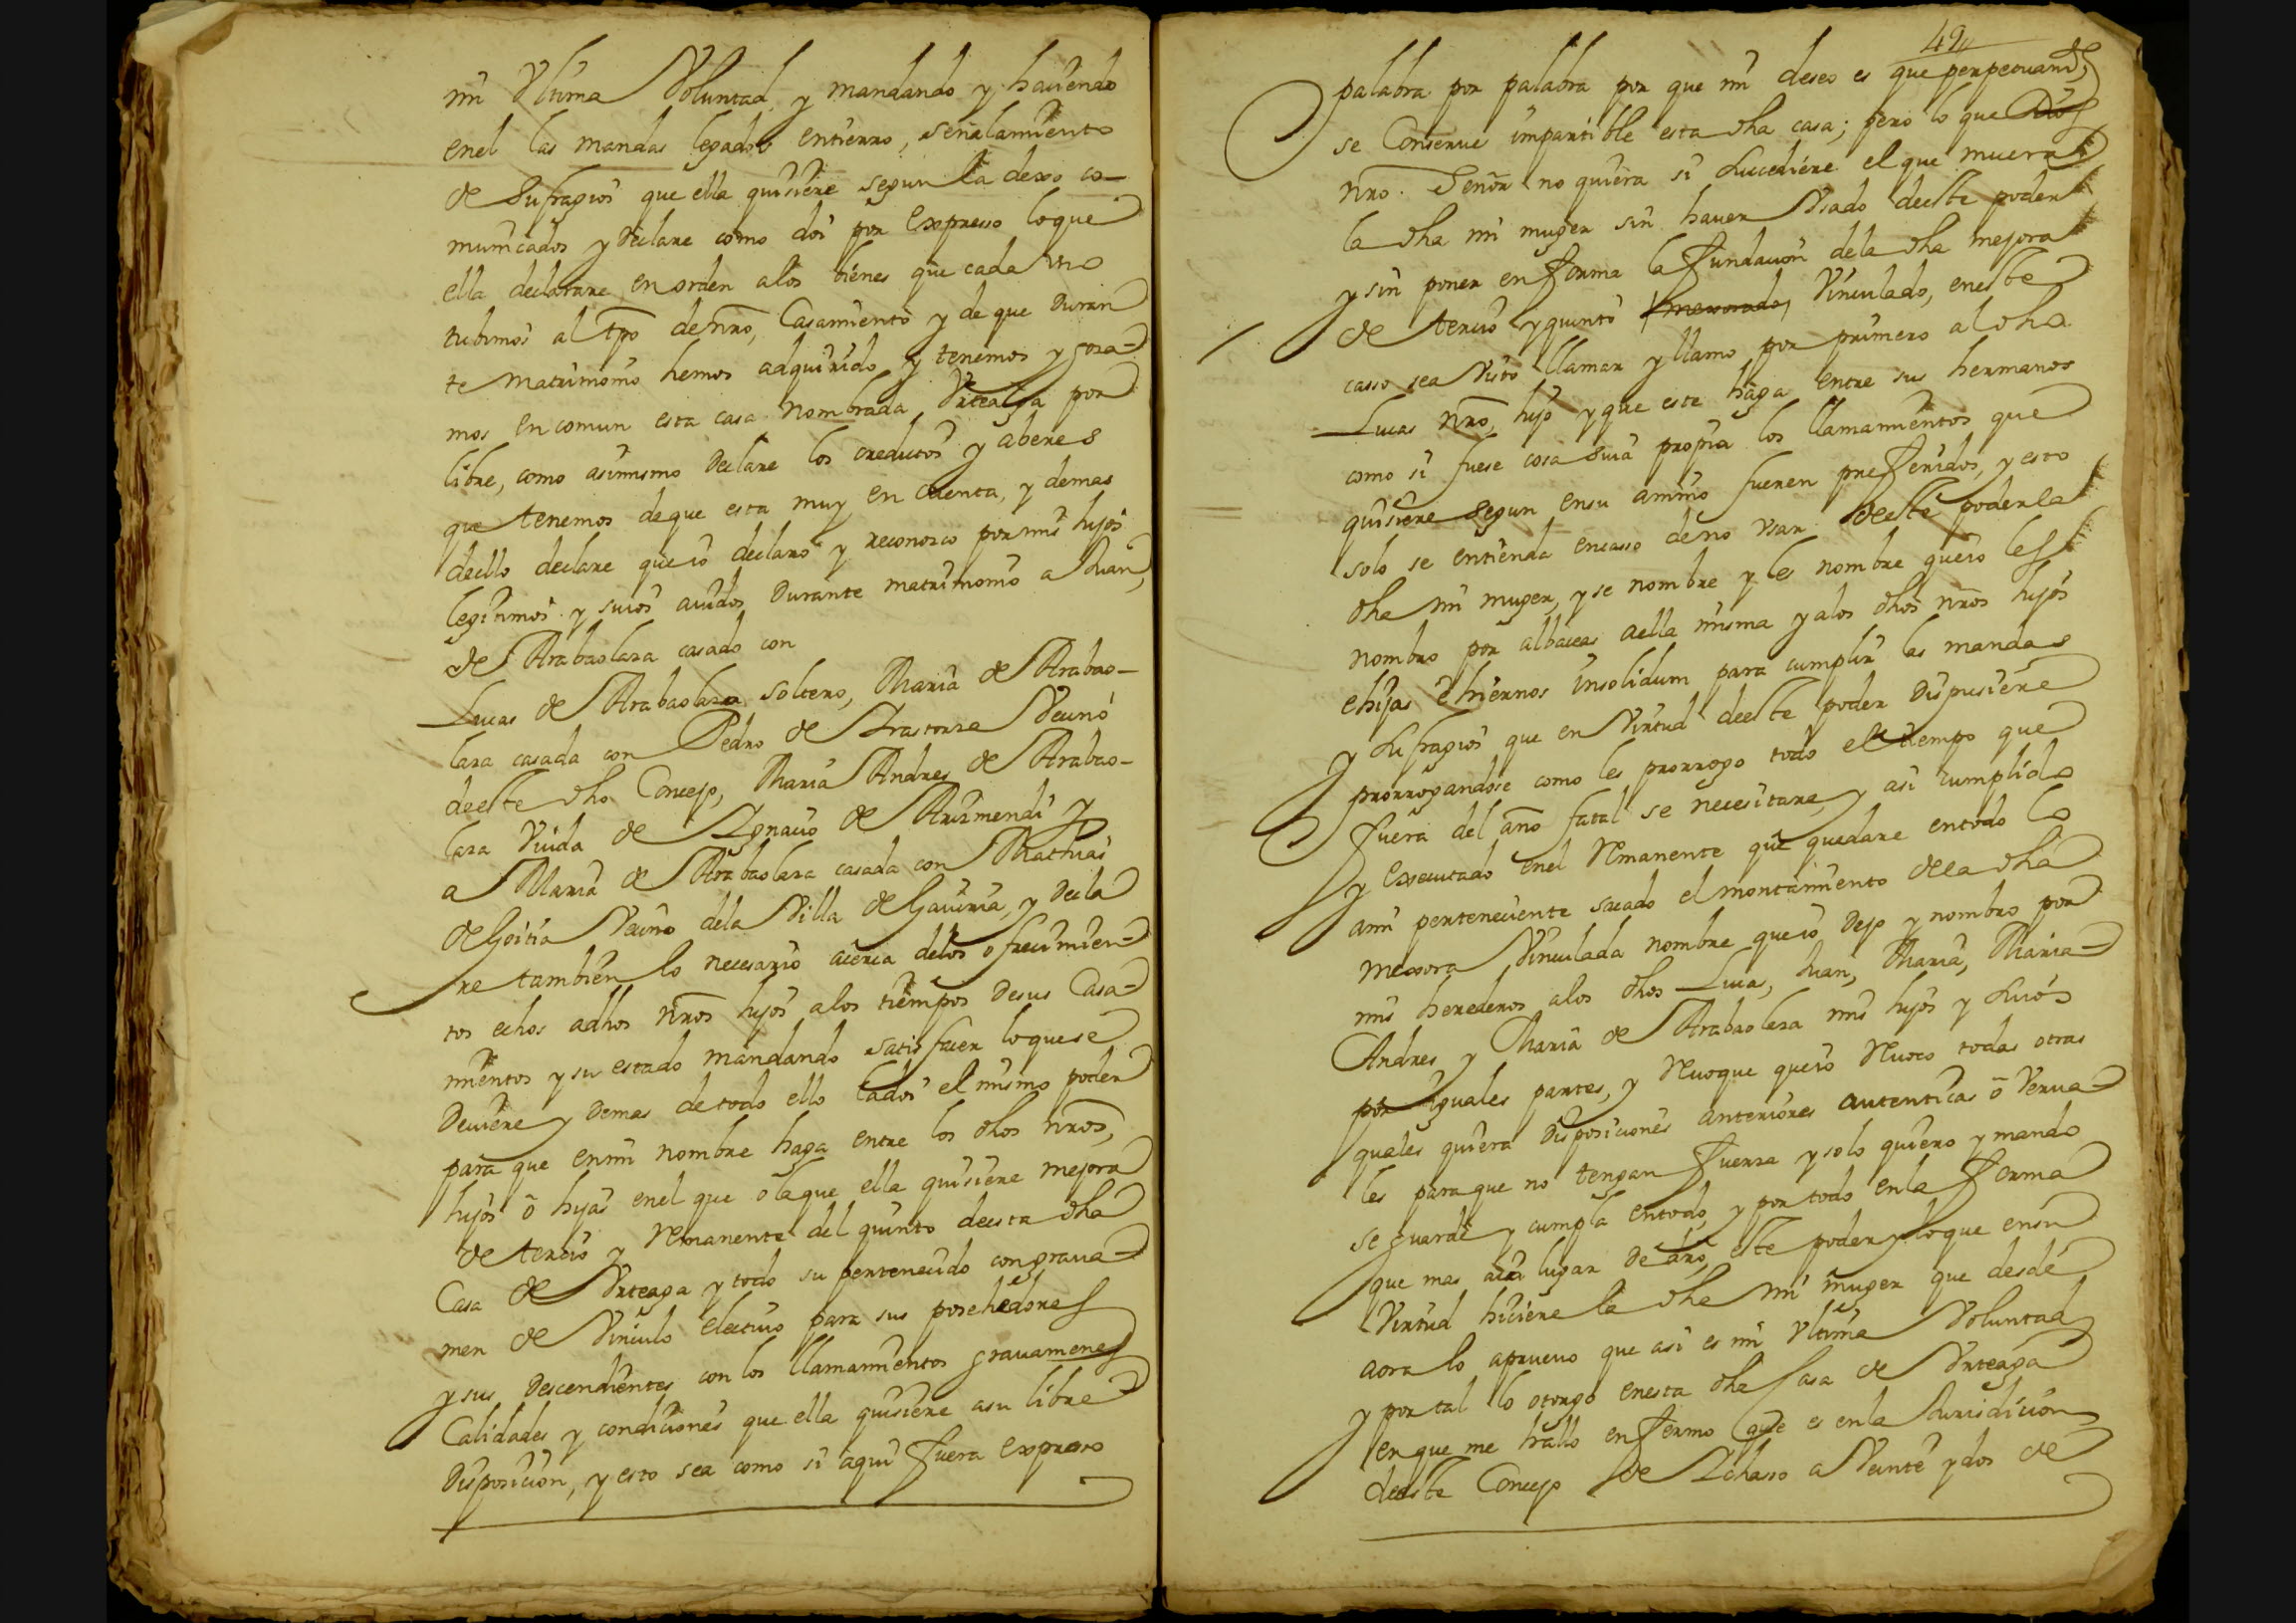 mi Vltima Voluntad, y mandando y haciendo
enel las mandas legados entierro, señalamiento
de Sufragios que ella quisiere segun la dexo co-
municados y declare como doi por Expresso loque
ella declarare en orden alos bienes que cada vno
tubimos al tpo de nro, Casamiento y de que Duran
te matrimonio hemos adquirido y tenemos y goza-
mos en comun esta casa nombrada Vrteaga por
libre, como asimismo Declare los creditos y aberes
que tenemos deque esta muy en cuenta, y demas
dello declare que io declaro y reconosco por mis hijos
legitimos y suios auidos Durante matrimonio a Juan,
de Arabaolaza casado con
Lucas de Arabaolaza soltero, Maria de Arabao-
laza casada con Pedro de Vecino
deeste dho Concejo, Maria Andres de Arabao-
laza Viuda de Ignacio de Arizmendi y
a Maria de Arabaolaza casada con Mathias
de Goitia Vecino dela Villa de Gauiria, y Decla
re tambien lo necesario acerca delos ofrecimien-
tos echos adhos nros hijos alos tiempos Desus Casa-
mientos y su estado mandando satisfacer loquese
Deuiere y Demas de todo ello la doi el mismo poder
para que enmi nombre haga entre los dhos nros,
hijos ô hijas enel que ô laque ella quisiere mejora
de tercio y Remanente del quinto deesta dha
Casa de Vrteaga y todo su pertenecido con graua-
men de Vinculo electiuo para sus posehedores
y sus Descendientes con los llamamientos grauamenes
Calidades y condiciones que ella quisiere asu libre
Disposicion, y esto sea como si aqui fuera Expreso
49
palabra por palabra por que mi deseo es que perpetuamte
se Conserue impartible esta dha casa; pero lo que Dios
nro. Señor no quiera si sucediere el que muera
la dha mi muger sin hauer Vsado deeste poder
y sin poner en forma la fundacion dela dha mejora
de tercio y quinto Vinculado, eneste
casso sea Visto llamar y llamo por primero al dho
Lucas nro, hijo y que este haga entre sus hermanos
como si fuese cosa suia propia los llamamientos que
quisiere segun ensu animo fueren preferidos, y esto
solo se entienda encasso deno vsar deeste poder la
dha mi muger, y se nombre y les nombre que io les
nombro por albaceas aella misma y alos dhos nros hijos
ehijas ê hiernos insolidum para cumplir las mandas
y sufragios que en Virtud deeste poder Dispusiere
prorrogandose como les prorrogo todo el tiempo que
fuera del año fatal se necesitare, y asi cumplido
y Executado enel Remanente que quedare entodo lo
ami perteneciente sacado el montamiento de la dha
mexora Vinculada nombre que io Dejo y nombro por
mis herederos alos dhos Lucas, Juan, Maria, Maria
Andres y Maria de Arabaolaza mis hijos y suios
por iguales partes, y Reuoque que io Reuoco todas otras
quales quiera Disposiciones anteriores autenticas ô Verua-
les para que no tengan fuerza y solo quiero y mando
se guarde y cumpla entodo y por todo enla forma
que mas aia lugar De dro, este poder y loque ensu
Virtud hiciere la dha mi muger que desde
aora lo aprueuo que asi es mi Vltima Voluntad
y por tal lo otorgo enesta dha Casa de Vrteaga
en que me hallo enfermo que es enla Jurisdicion
deeste Concejo de Ichaso a Veinte y dos de